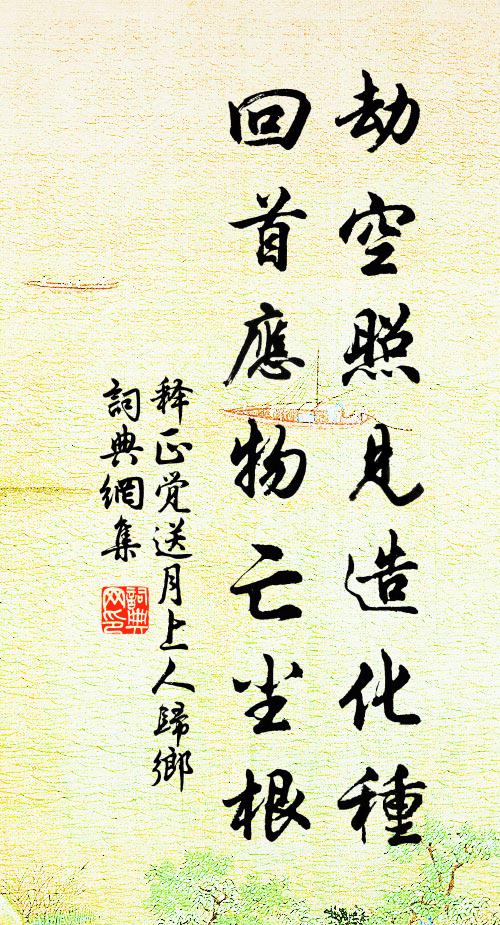 劫空照見造化種
回首應物亡尘根
释正觉送月上人歸鄉
詞典網集
詞典网印